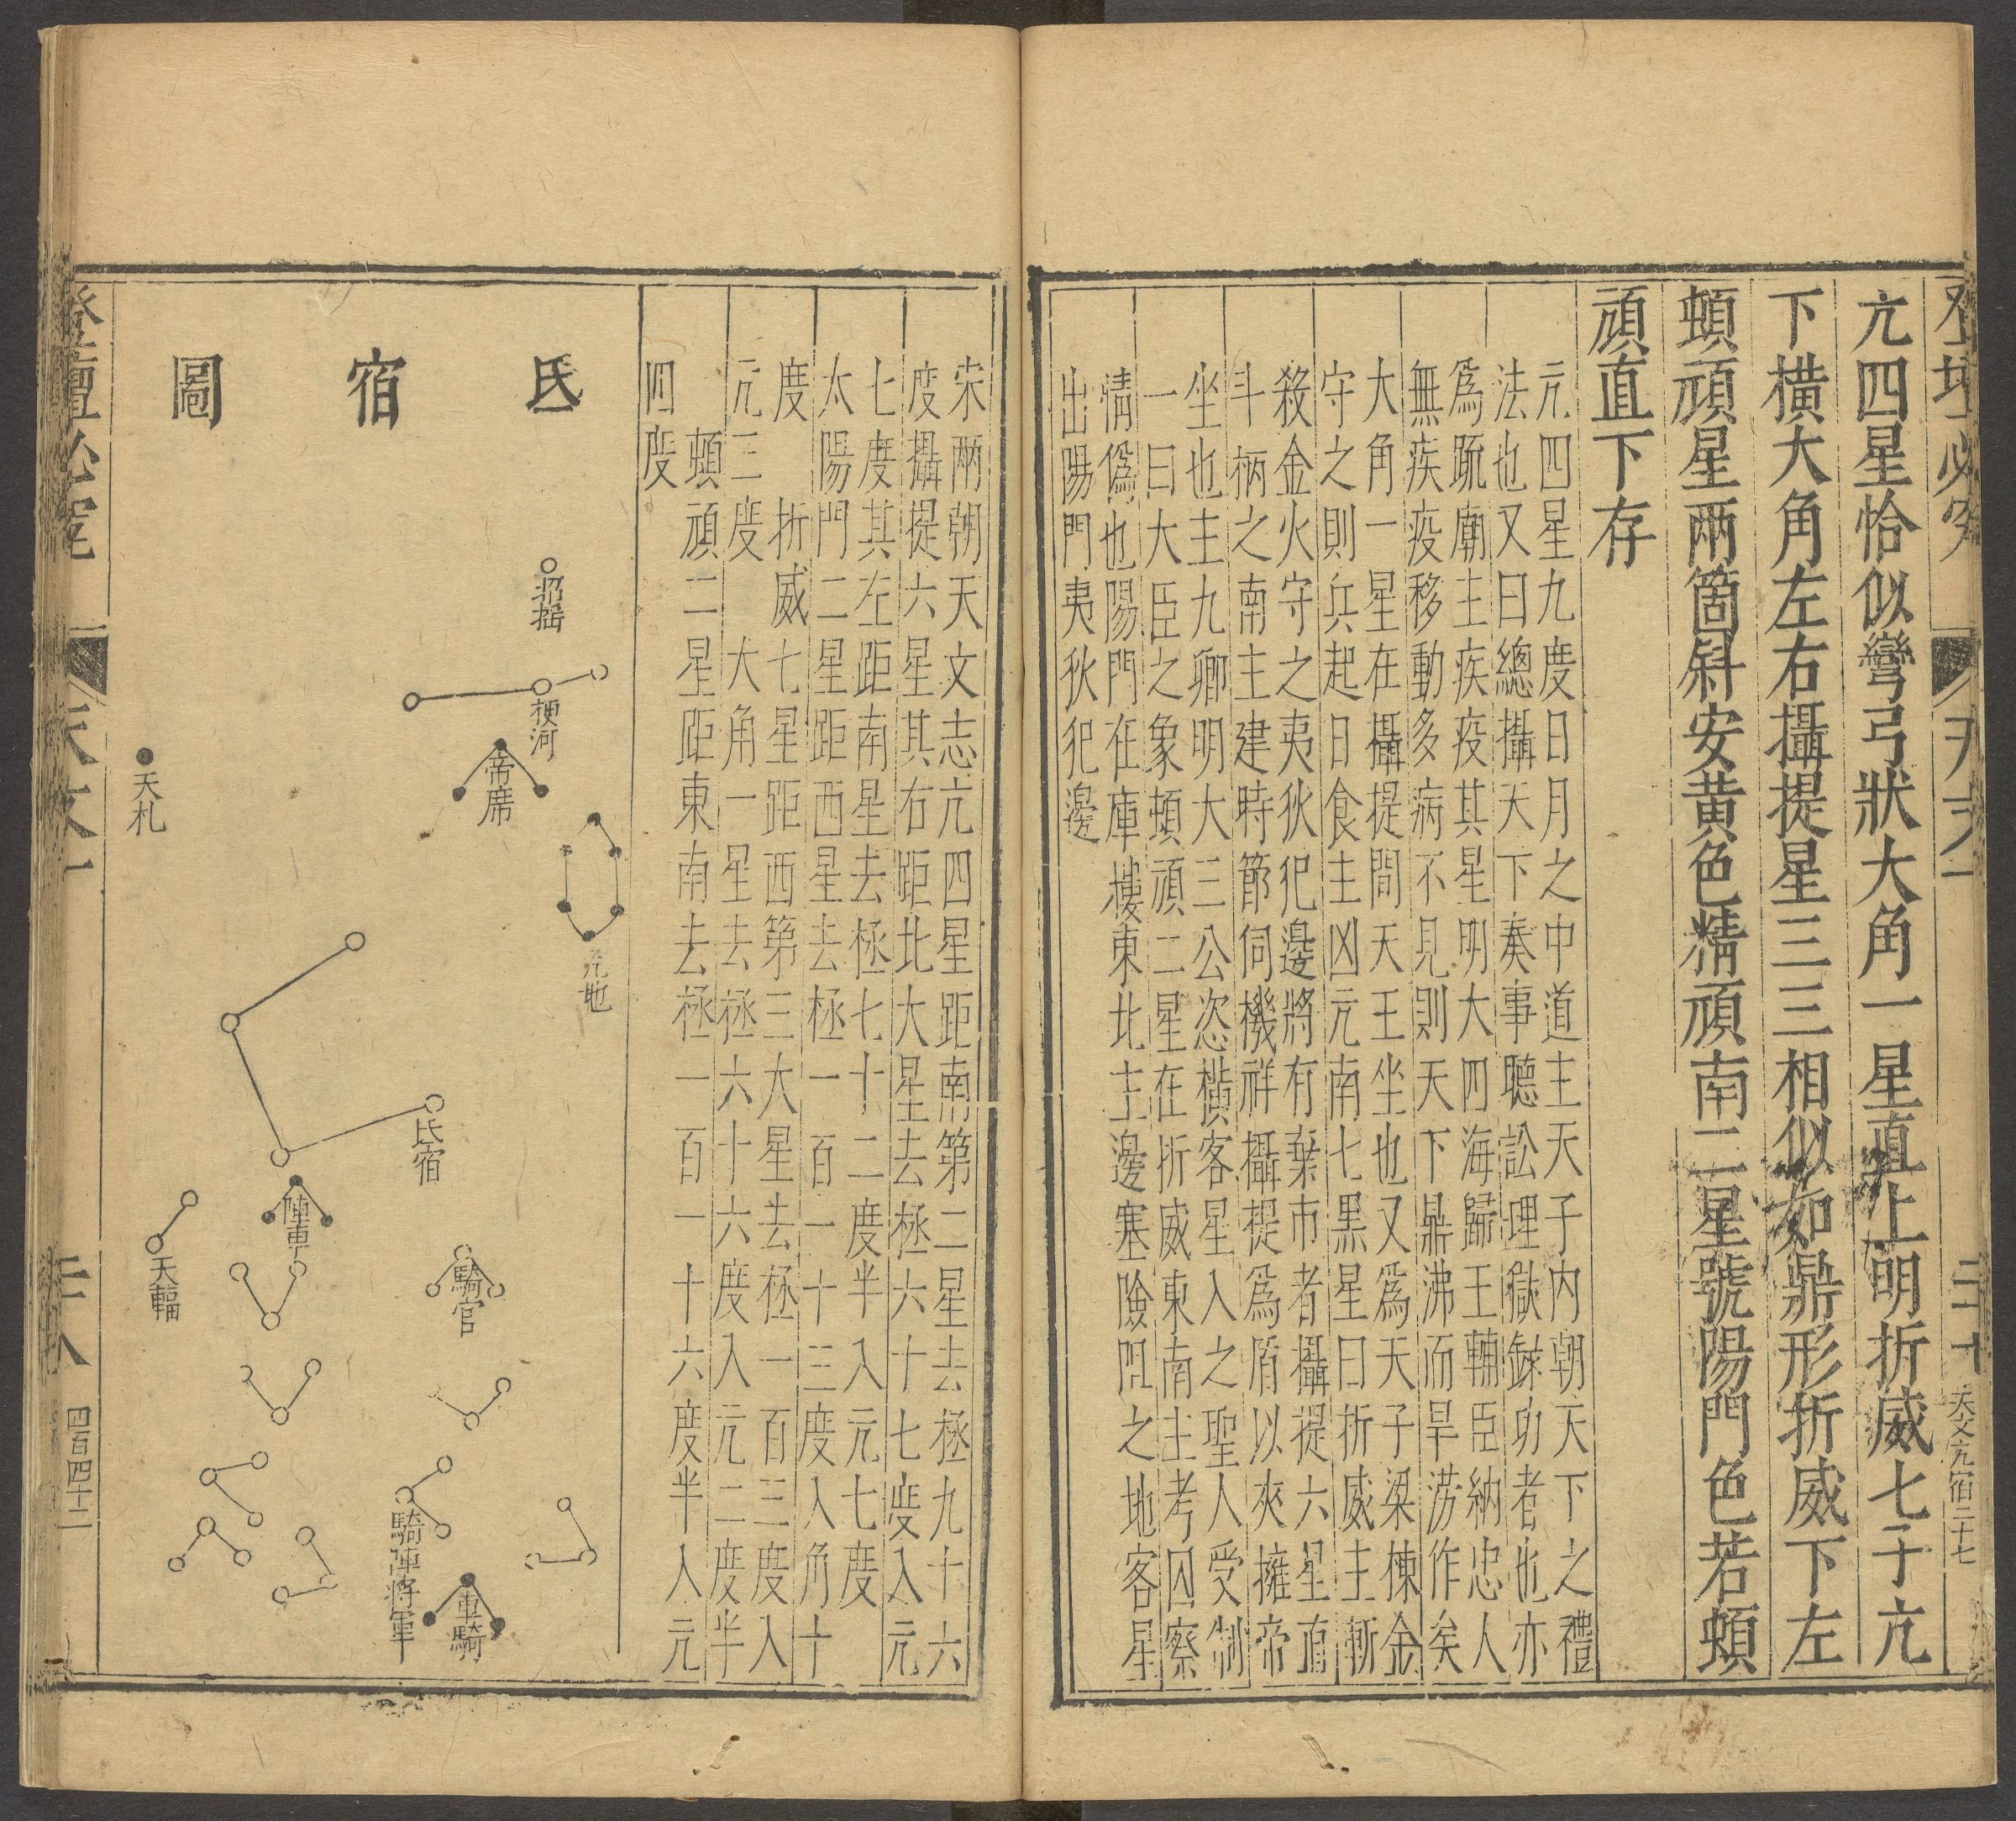 登壇必究
天文一
二十
天文亢宿二十七
亢四星恰似彎弓狀大角一星直上明折威七子亢
下橫大角左右攝提星三三相似如鼎形折威下左
頓頑星兩箇斜安黃色精頑南二星號陽門色若頓
頑直下存
亢四星九度日月之中道主天子內朝天下之禮
法也又曰總攝天下奏事聽訟理獄錄功者也亦
為疏廟主疾疫其星明大四海歸王輔臣納忠人
無疾疫移動多病不見則天下鼎沸而旱澇作矣
大角一星在攝提間天王坐也又為天子梁棟金
守之則兵起日食主凶亢南七黑星曰折威主斬
殺金火守之夷狄犯邊將有棄市者攝提六星直
斗柄之南主建時節伺機祥攝提為盾以夾擁帝
坐也主九卿明大三公恣橫客星入之聖人受制
一曰大臣之象頓頑二星在折威東南主考囚察
情偽也陽門在庫樓東北主邊塞險阻之地客星
出陽門夷狄犯邊
宋兩朝天文志亢四星距南第二星去極九十六
度攝提六星其右距北大星去極六十七度入亢
七度其左距南星去極七十二度半入亢七度
太陽門二星距西星去極一百一十三度入角十
度 折威七星距西第三大星去極一百三度入
亢三度 大角一星去極六十六度入亢二度半
頓頑二星距東南去極一百一十六度半入亢
四度
氐宿圖
招搖
梗河
帝席
亢池
氐宿
騎官
騎陣將軍
車騎
陣車
天札
天輻
登壇必究
天文一
四百四十二